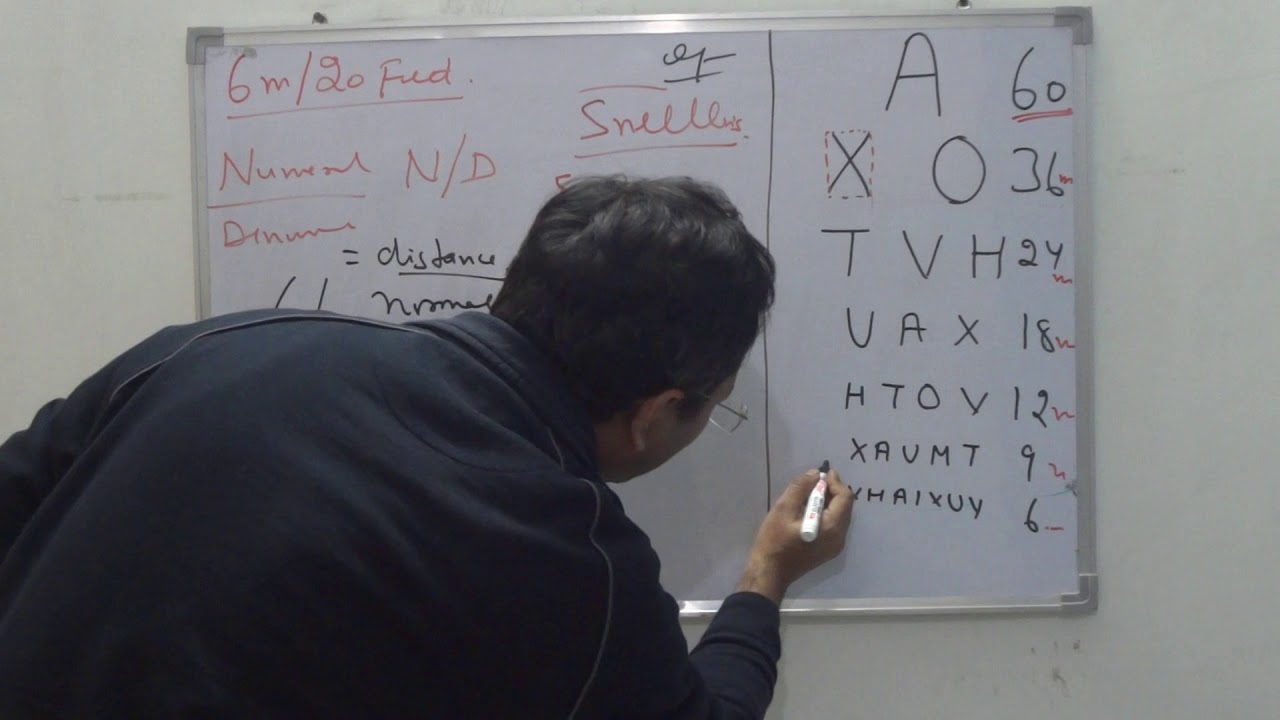 6m/20 Fud.
Numeral N/D
= distance
Snellen's.
A 60
X O 36m
T V H 24m
U A X 18m
H T O V 12m
X A U M T 9m
H A I X U Y 6